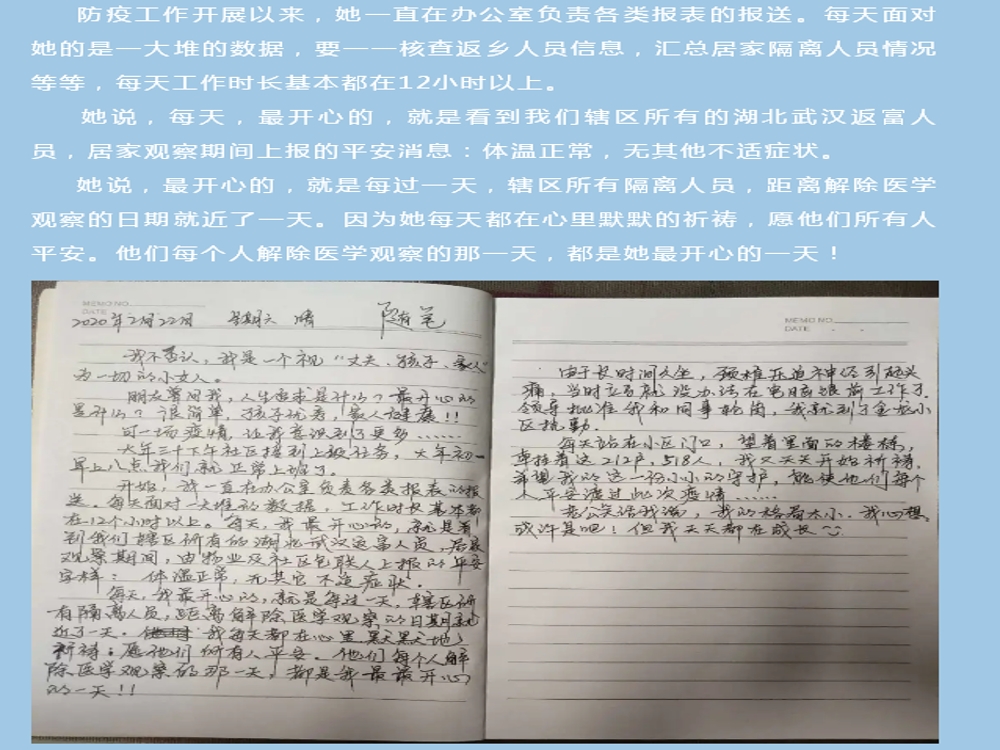 防疫工作开展以来，她一直在办公室负责各类报表的报送。每天面对
她的是一大堆的数据，要一一核查返乡人员信息，汇总居家隔离人员情况
等等，每天工作时长基本都在12小时以上。
她说，每天，最开心的，就是看到我们辖区所有的湖北武汉返富人
员，居家观察期间上报的平安消息：体温正常，无其他不适症状。
她说，最开心的，就是每过一天，辖区所有隔离人员，距离解除医学
观察的日期就近了一天。因为她每天都在心里默默的祈祷，愿他们所有人
平安。他们每个人解除医学观察的那一天，都是她最开心的一天！
MEMO NO.
DATE
2020年2月22日 星期六 晴 随笔
我不否认，我是一个视“丈夫、孩子、家人”
为一切的小女人。
朋友曾问我，人生追求是什么？最开心的
是什么？很简单，孩子优秀，家人健康！！
可一场疫情，让我意识到了更多……
大年三十下午社区接到上级任务，大年初一
早上八点我们就正常上班了。
开始，我一直在办公室负责各类报表的报
送。每天面对一大堆的数据，工作时长基本都
在12个小时以上。每天，我最开心的，就是看
到我们辖区所有的湖北武汉返富人员，居家
观察期间，由物业及社区包联人上报的平安
字样：体温正常，无其它不适症状。
每天，我最开心的，就是每过一天，辖区所
有隔离人员，距离解除医学观察的日期就
近了一天。我每天都在心里默默地
祈祷：愿他们所有人平安。他们每个人解
除医学观察的那一天，都是我最最开心
的一天！！
MEMO NO.
DATE
由于长时间久坐，颈椎压迫神经引起头
痛，当时立马就没办法在电脑跟前工作了。
领导批准我和同事轮岗，我就到了金 小
区执勤。
每天站在小区门口，望着里面的楼栋，
牵挂着这212户，518人，我又天天开始祈祷，
希望我的这一份小小的守护，能使他们每个
人平安渡过此次疫情……
老公笑话我说，我的格局太小。我心想，
或许是吧！但我天天都在成长☺